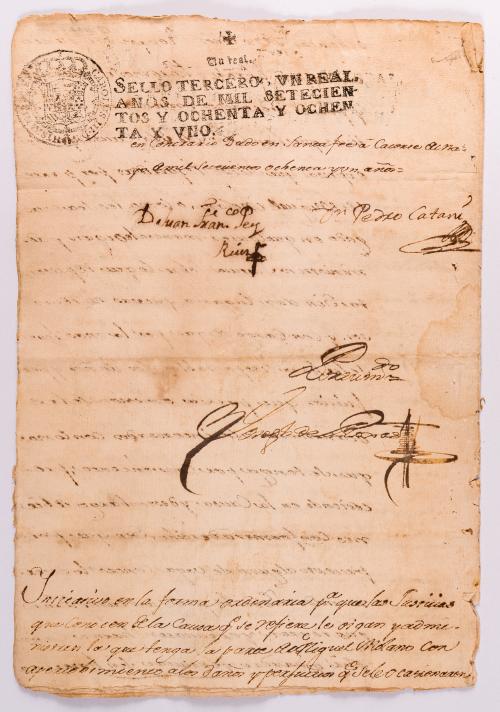 Un real.
SELLO TERCERO, VN REAL,
AÑOS DE MIL SETECIEN-
TOS Y OCHENTA Y OCHEN
TA Y VNO.
en Contrario Dado en Santa fee a Catorce de
mil setecientos ochenta y un años=
Dn Juan Franco Pey
Ruiz
Dn Pedro Catani
Por su mdo
en la forma ordinaria pa. que las Justicias
que conocen de la Causa qe. se refiere le oigan y admi-
nistren la que tenga la parte de Miguel Molano con
apercibimiento a los Daños y perjuicios qe. se le ocasionaren